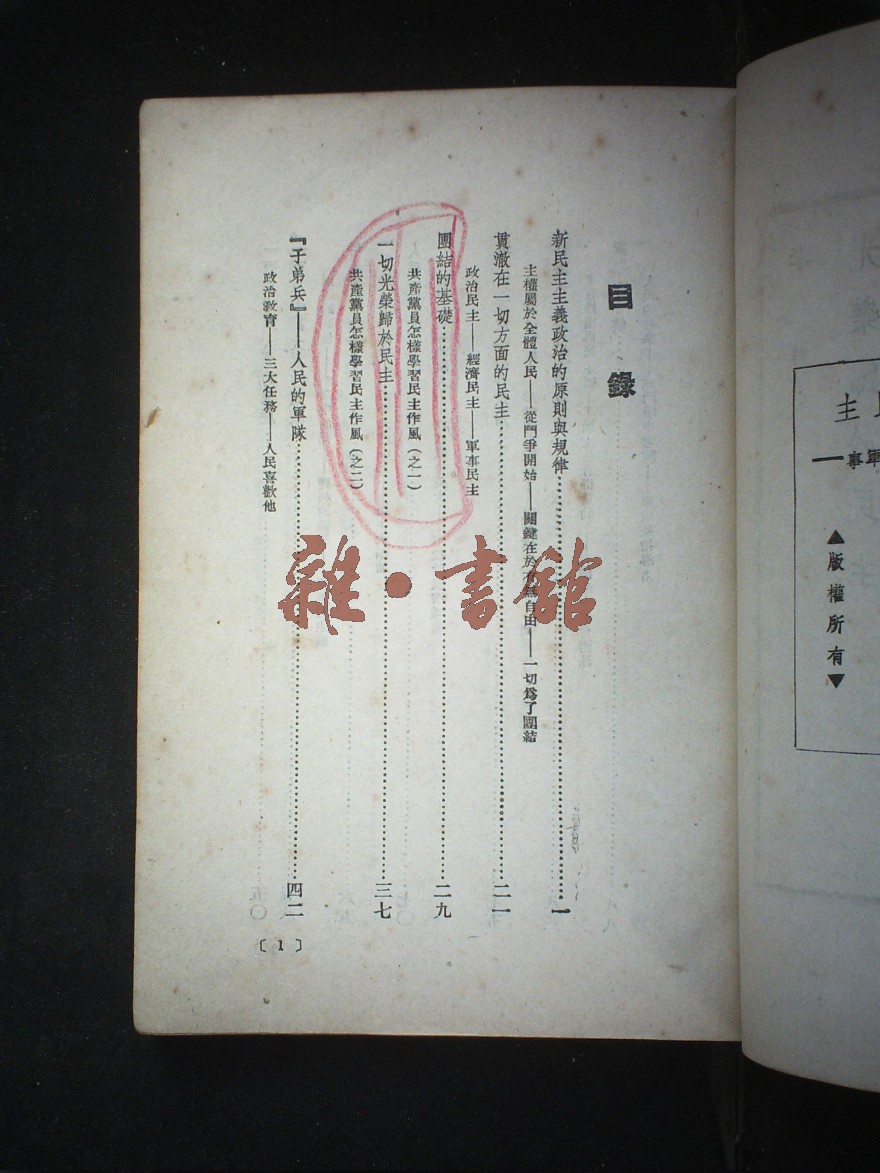 主
軍事——
▲版權所有▼
目錄
新民主主義政治的原則與規律……一
主權屬於全體人民——從鬥爭開始——關鍵在於有無自由——一切爲了團結
貫澈在一切方面的民主……二一
政治民主——經濟民主——軍事民主
團結的基礎……二九
共產黨員怎樣學習民主作風(之一)
一切光榮歸於民主……三七
共產黨員怎樣學習民主作風(之二)
『子弟兵』——人民的軍隊……四二
政治教育——三大任務——人民喜歡他
〔1〕
雜·書館